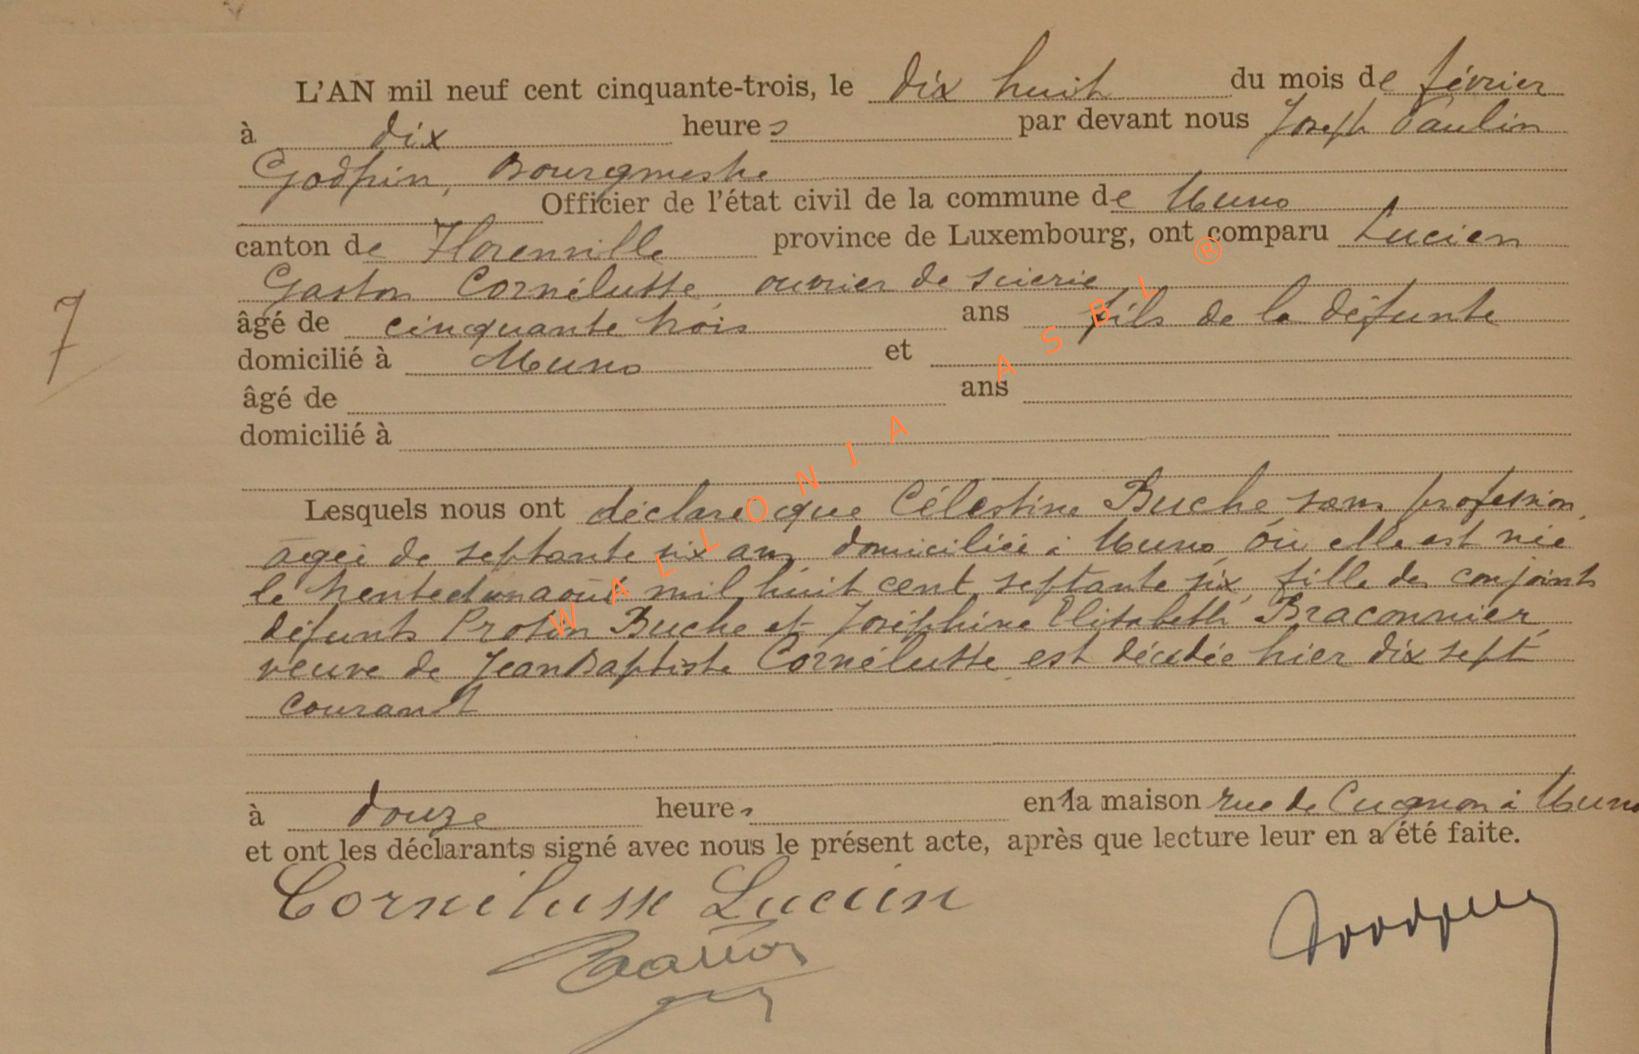 L'AN mil neuf cent cinquante-trois, le dix huit du mois de février
à dix heures par devant nous Joseph Paulin
Godfrin, Bourgmestre
Officier de l'état civil de la commune de Muno
canton de Florenville province de Luxembourg, ont comparu Lucien
Gaston Cornélusse, ouvrier de scierie
âgé de cinquante trois ans fils de la défunte
7
domicilié à Muno et
âgé de ans
domicilié à
Lesquels nous ont déclaré que Célestine Buche sans profession,
âgée de septante six ans, domiciliée à Muno, où elle est née
le trente et un août mil huit cent septante six, fille des conjoints
défunts Protin Buche et Joséphine Elisabeth Braconnier,
veuve de Jean Baptiste Cornélusse, est décédée hier dix sept
courant
à douze heures en la maison rue de Cugnon à Muno
et ont les déclarants signé avec nous le présent acte, après que lecture leur en a été faite.
Cornelusse Lucien
WALLONIA ASBL ®